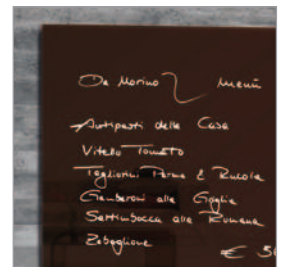 Da Morino Menü
Antipasti della Casa
Vitello Tonnato
Tagliolini Parma & Rucola
Gamberoni alla Griglia
Saltimbocca alla Romana
Zabaglione
€